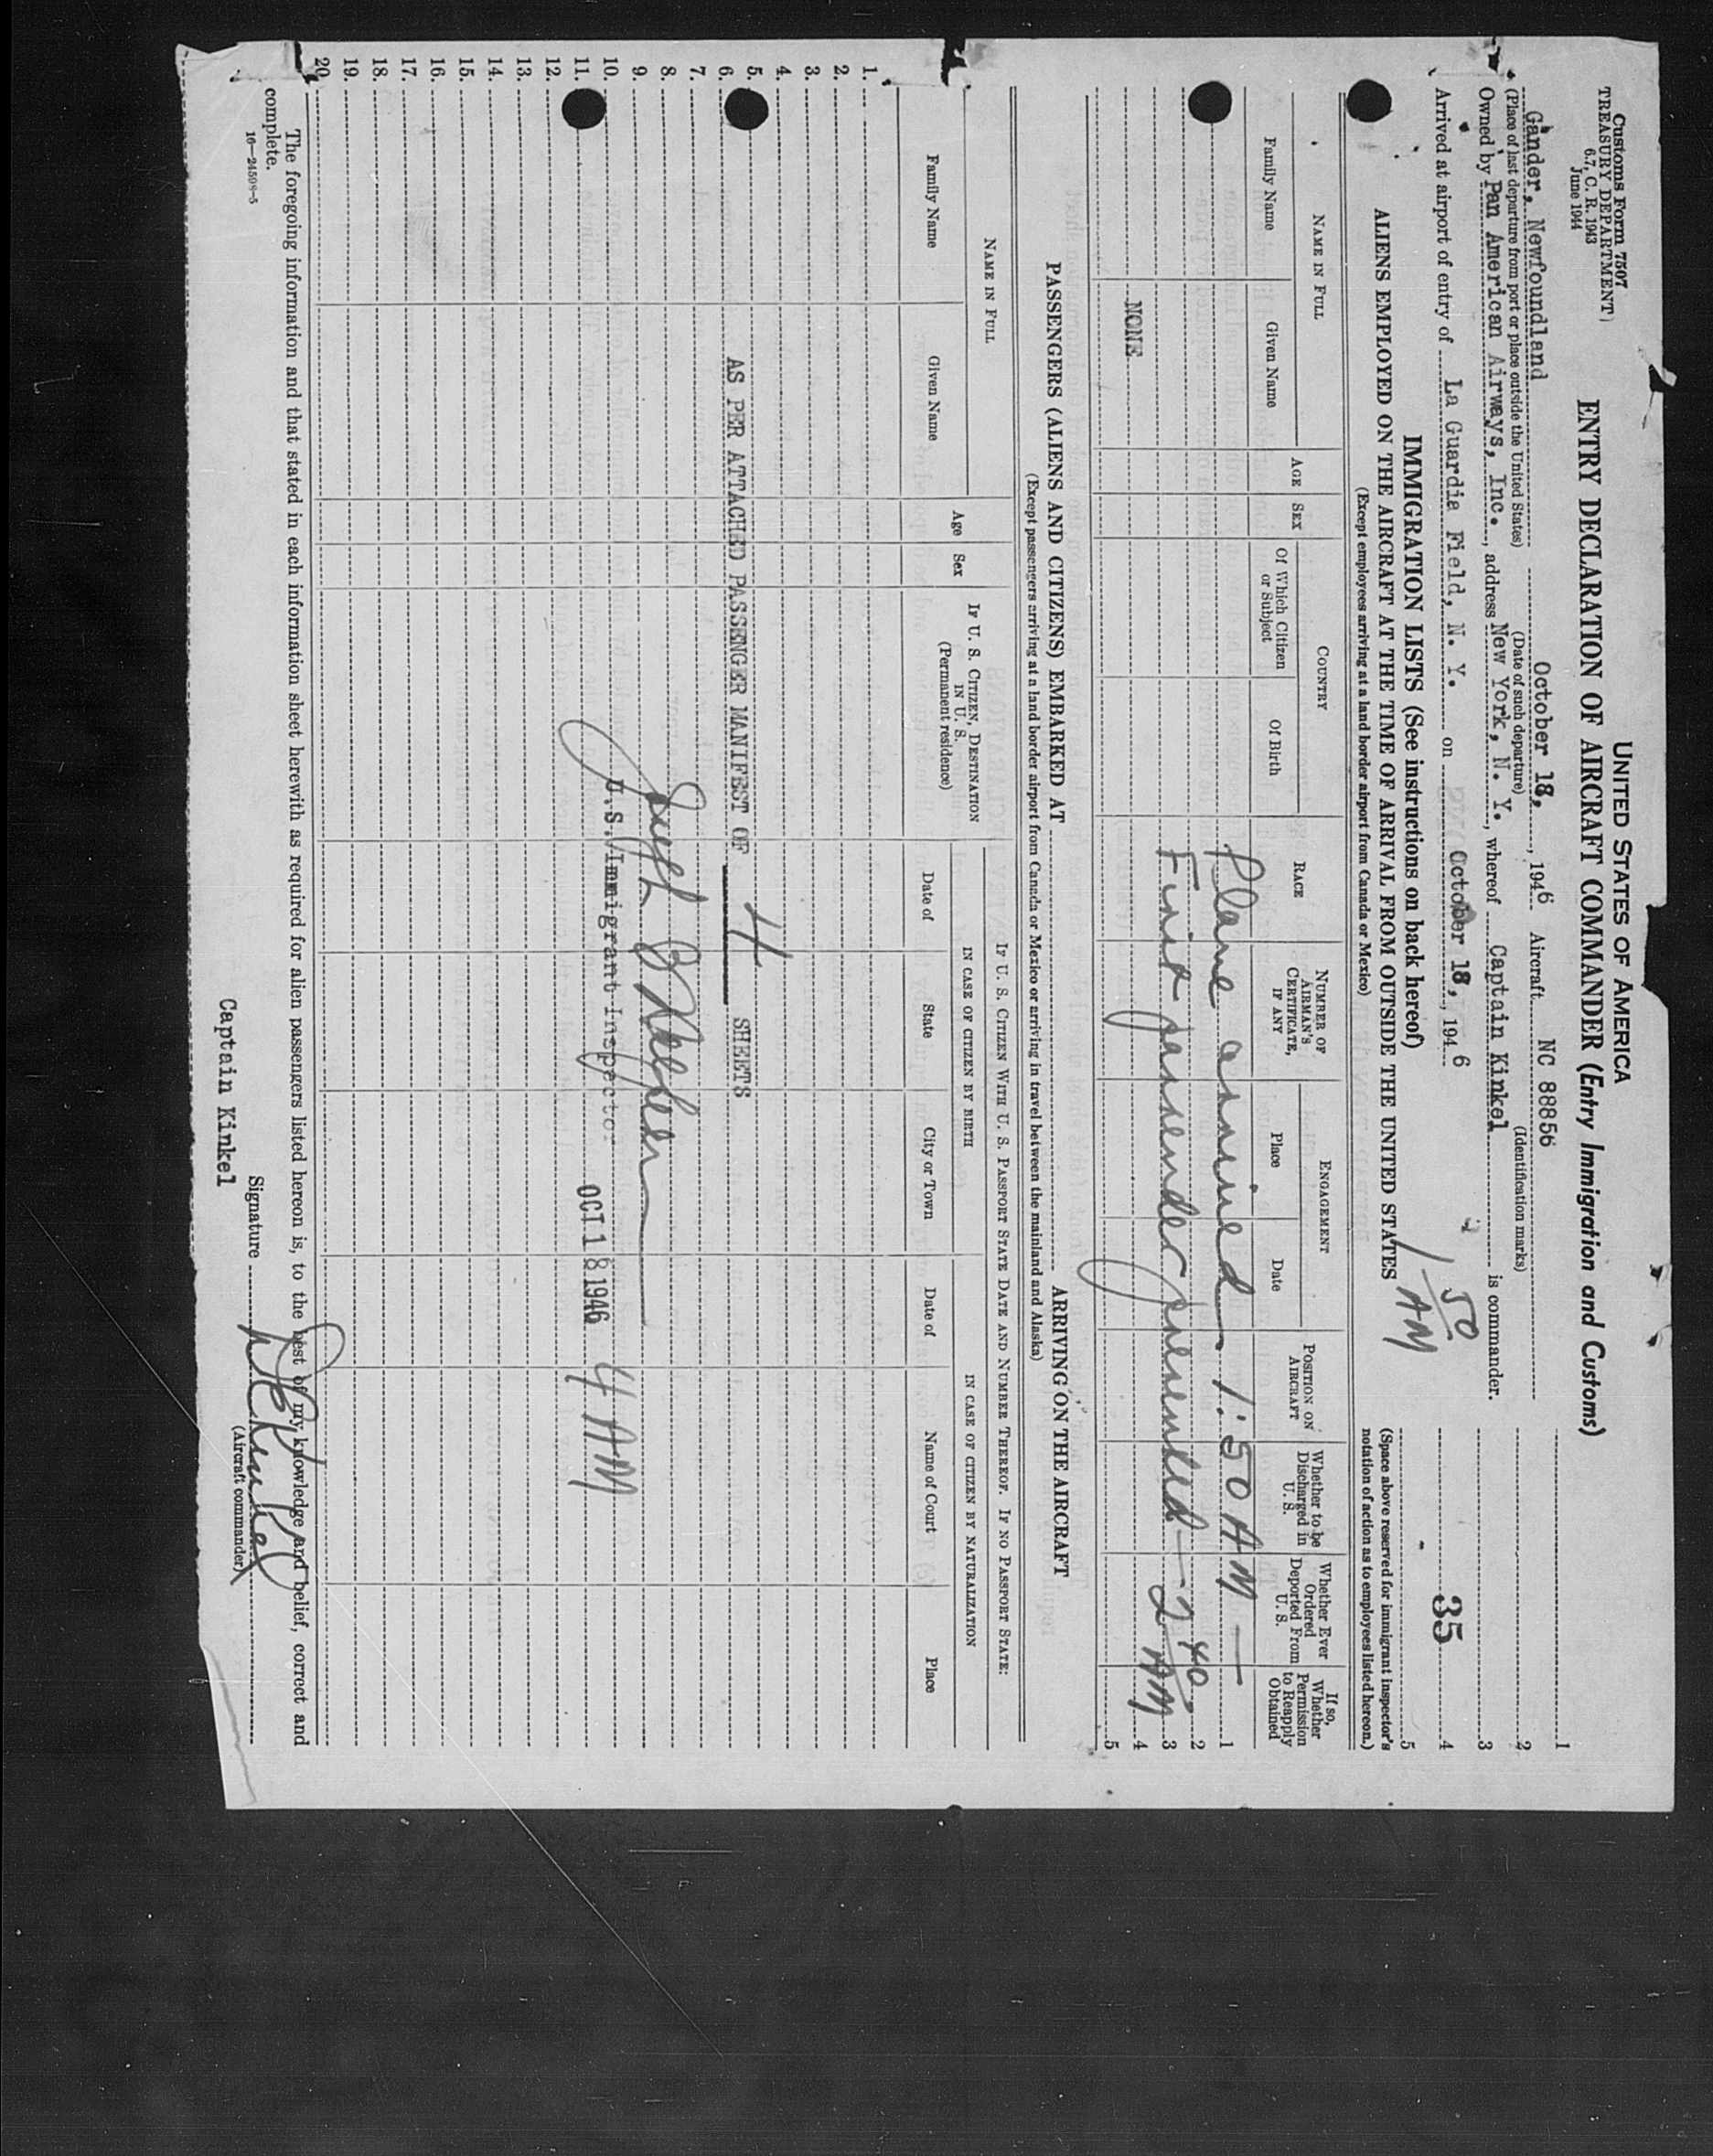 Customs Form 7507
TREASURY DEPARTMENT
6.7, C. R. 1943
June 1944
UNITED STATES OF AMERICA
ENTRY DECLARATION OF AIRCRAFT COMMANDER (Entry Immigration and Customs)
Gander, Newfoundland October 18, , 1946 Aircraft NC 88856
(Place of last departure from port or place outside the United States) (Date of such departure) (Identification marks)
Owned by Pan American Airways, Inc. , address New York, N. Y. , whereof Captain Kinkel is commander.
Arrived at airport of entry of La Guardia Field, N. Y. on October 18, , 1946
1 50 AM
1
2
3
35 4
5
IMMIGRATION LISTS (See instructions on back hereof)
ALIENS EMPLOYED ON THE AIRCRAFT AT THE TIME OF ARRIVAL FROM OUTSIDE THE UNITED STATES
(Except employees arriving at a land border airport from Canada or Mexico)
(Space above reserved for immigrant inspector's
notation of action as to employees listed hereon.)
NAME IN FULL
Family Name
Given Name
AGE
SEX
COUNTRY
Of Which Citizen
or Subject
Of Birth
RACE
NUMBER OF
AIRMAN'S
CERTIFICATE,
IF ANY
ENGAGEMENT
Place
Date
POSITION ON
AIRCRAFT
Whether to be
Discharged in
U. S.
Whether Ever
Ordered
Deported From
U. S.
If so,
Whether
Permission
to Reapply
Obtained
Plane arrived 1:50 AM 1
2
First passenger presented 2 40 AM 3
NONE 4
5
PASSENGERS (ALIENS AND CITIZENS) EMBARKED AT ARRIVING ON THE AIRCRAFT
(Except passengers arriving at a land border airport from Canada or Mexico or arriving in travel between the mainland and Alaska)
NAME IN FULL
Family Name
Given Name
Age
Sex
IF U. S. CITIZEN, DESTINATION
IN U. S.
(Permanent residence)
IF U. S. CITIZEN WITH U. S. PASSPORT STATE DATE AND NUMBER THEREOF. IF NO PASSPORT STATE:
IN CASE OF CITIZEN BY BIRTH
IN CASE OF CITIZEN BY NATURALIZATION
Date of
State
City or Town
Date of
Name of Court
Place
1.
2.
3.
4.
5.
6. AS PER ATTACHED PASSENGER MANIFEST OF 4 SHEETS
7.
8.
9.
10. U.S. Immigrant Inspector
11. OCT 18 1946 4 AM
12.
13.
14.
15.
16.
17.
18.
19.
20.
The foregoing information and that stated in each information sheet herewith as required for alien passengers listed hereon is, to the best of my knowledge and belief, correct and
complete.
16—24598-5
Signature
(Aircraft commander)
Captain Kinkel